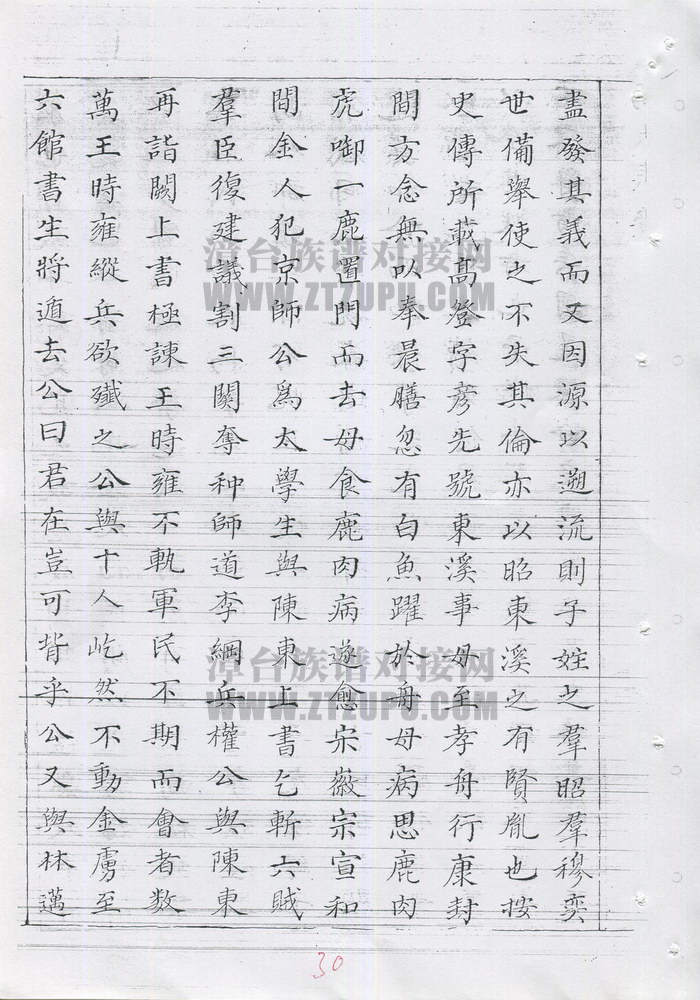 盡發其義而又因源以遡流則子姓之羣昭羣穆奕
世備舉使之不失其倫亦以昭東溪之有賢胤也按
史傳所載髙登字彥先號東溪事母至孝舟行康封
間方念無以奉晨膳忽有白魚躍於舟母病思鹿肉
虎啣一鹿置門而去母食鹿肉病遂愈宋徽宗宣和
間金人犯京師公爲太學生與陳東上書乞斬六賊
羣臣復建議割三關奪种師道李綱兵權公與陳東
再詣闕上書極諫王時雍不軌軍民不期而會者数
萬王時雍縱兵欲殲之公與十人屹然不動金虜至
六館書生將遁去公曰君在豈可背乎公又與林邁
漳台族谱对接网
WWW.ZTZUPU.COM
漳台族谱对接网
WWW.ZTZUPU.COM
30